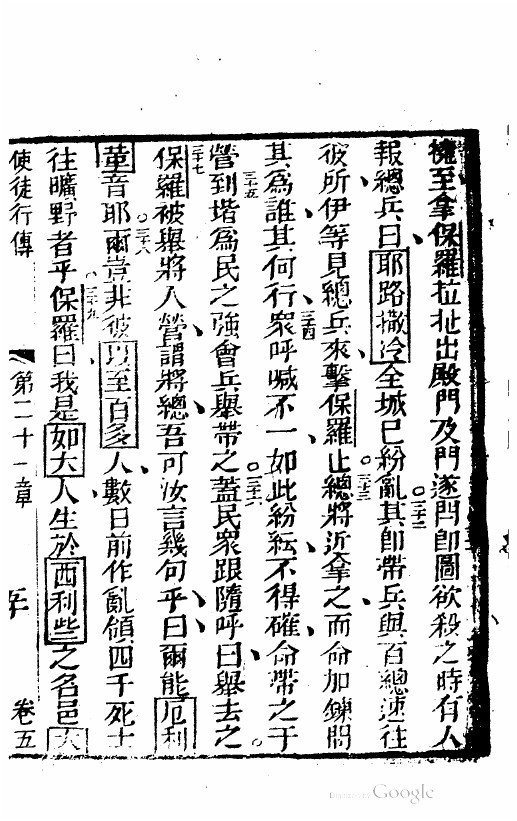 擁至拿保羅拉扯出殿門及門遂閂卽圖欲殺之時有人
報總兵曰耶路撒冷全城已紛亂其卽帶兵與百總速往
彼所伊等見總兵來擊保羅止總將近拿之而命加鍊問
其爲誰其何行衆呼喊不一如此紛紜不得確命帶之于
營到堦爲民之強會兵舉帶之蓋民衆跟隨呼曰舉去之
保羅被舉將入營謂將總吾可汝言幾句乎曰爾能厄利
音耶爾豈非彼以至百多人數日前作亂領四千死士
往曠野者乎保羅曰我是如大人生於西利些之名邑大
使徒行傳 第二十一章 卷五
三十二
三十三
三十四
三十五
三十六
三十七
三十八
三十九
Digitized by Google